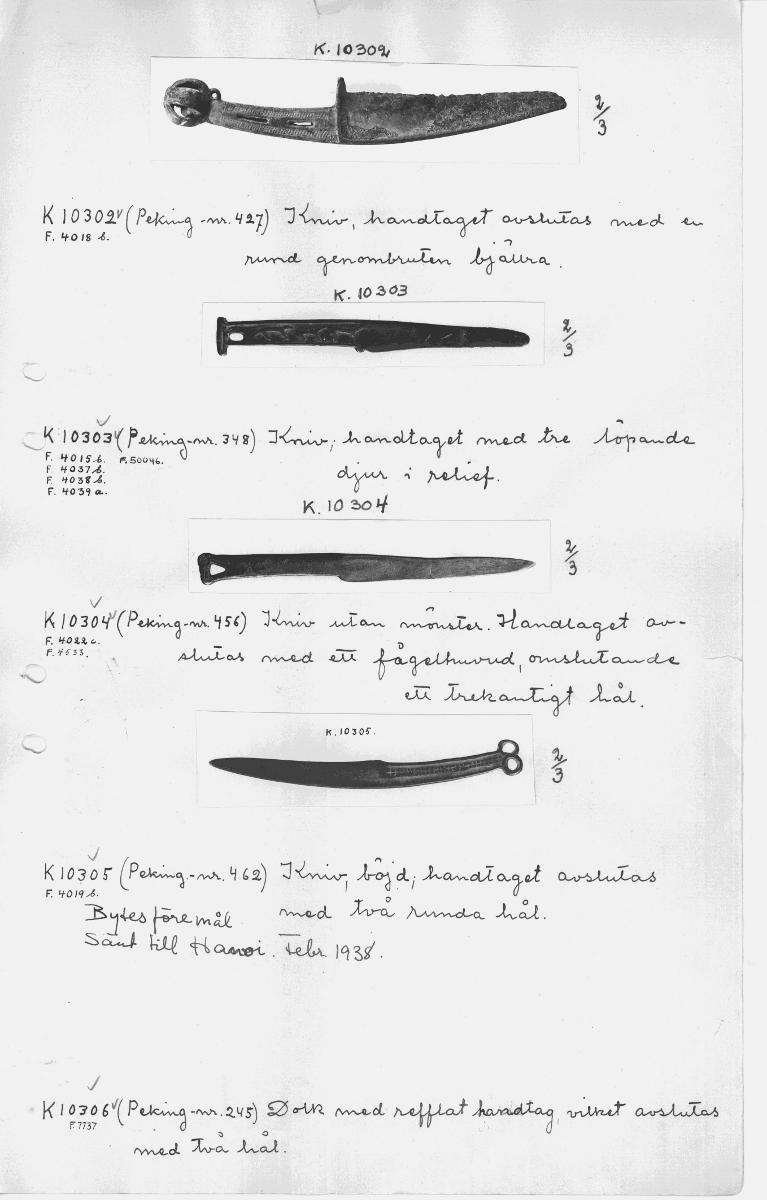 K. 10302
2/3
K 10302 (Peking-nr. 427) Kniv, handtaget avslutas med en
F. 4018 b.
rund genombruten bjällra.
K. 10303
2/3
K 10303 (Peking-nr. 348) Kniv; handtaget med tre löpande
F. 4015 b. F. 50046.
F. 4037 b.
djur i relief.
F. 4038 b.
F. 4039 a.
K. 10304
2/3
K 10304 (Peking-nr. 456) Kniv utan mönster. Handtaget av-
F. 4022 c.
F. 4533.
slutas med ett fågelhuvud, omslutande
ett trekantigt hål.
K. 10305.
2/3
K 10305 (Peking-nr. 462) Kniv, böjd; handtaget avslutas
F. 4019 b.
med två runda hål.
Bytesföremål
Sänt till Hanoi. Febr 1938.
K 10306 (Peking-nr. 245) Dolk med refflat handtag, vilket avslutas
F. 7737
med två hål.